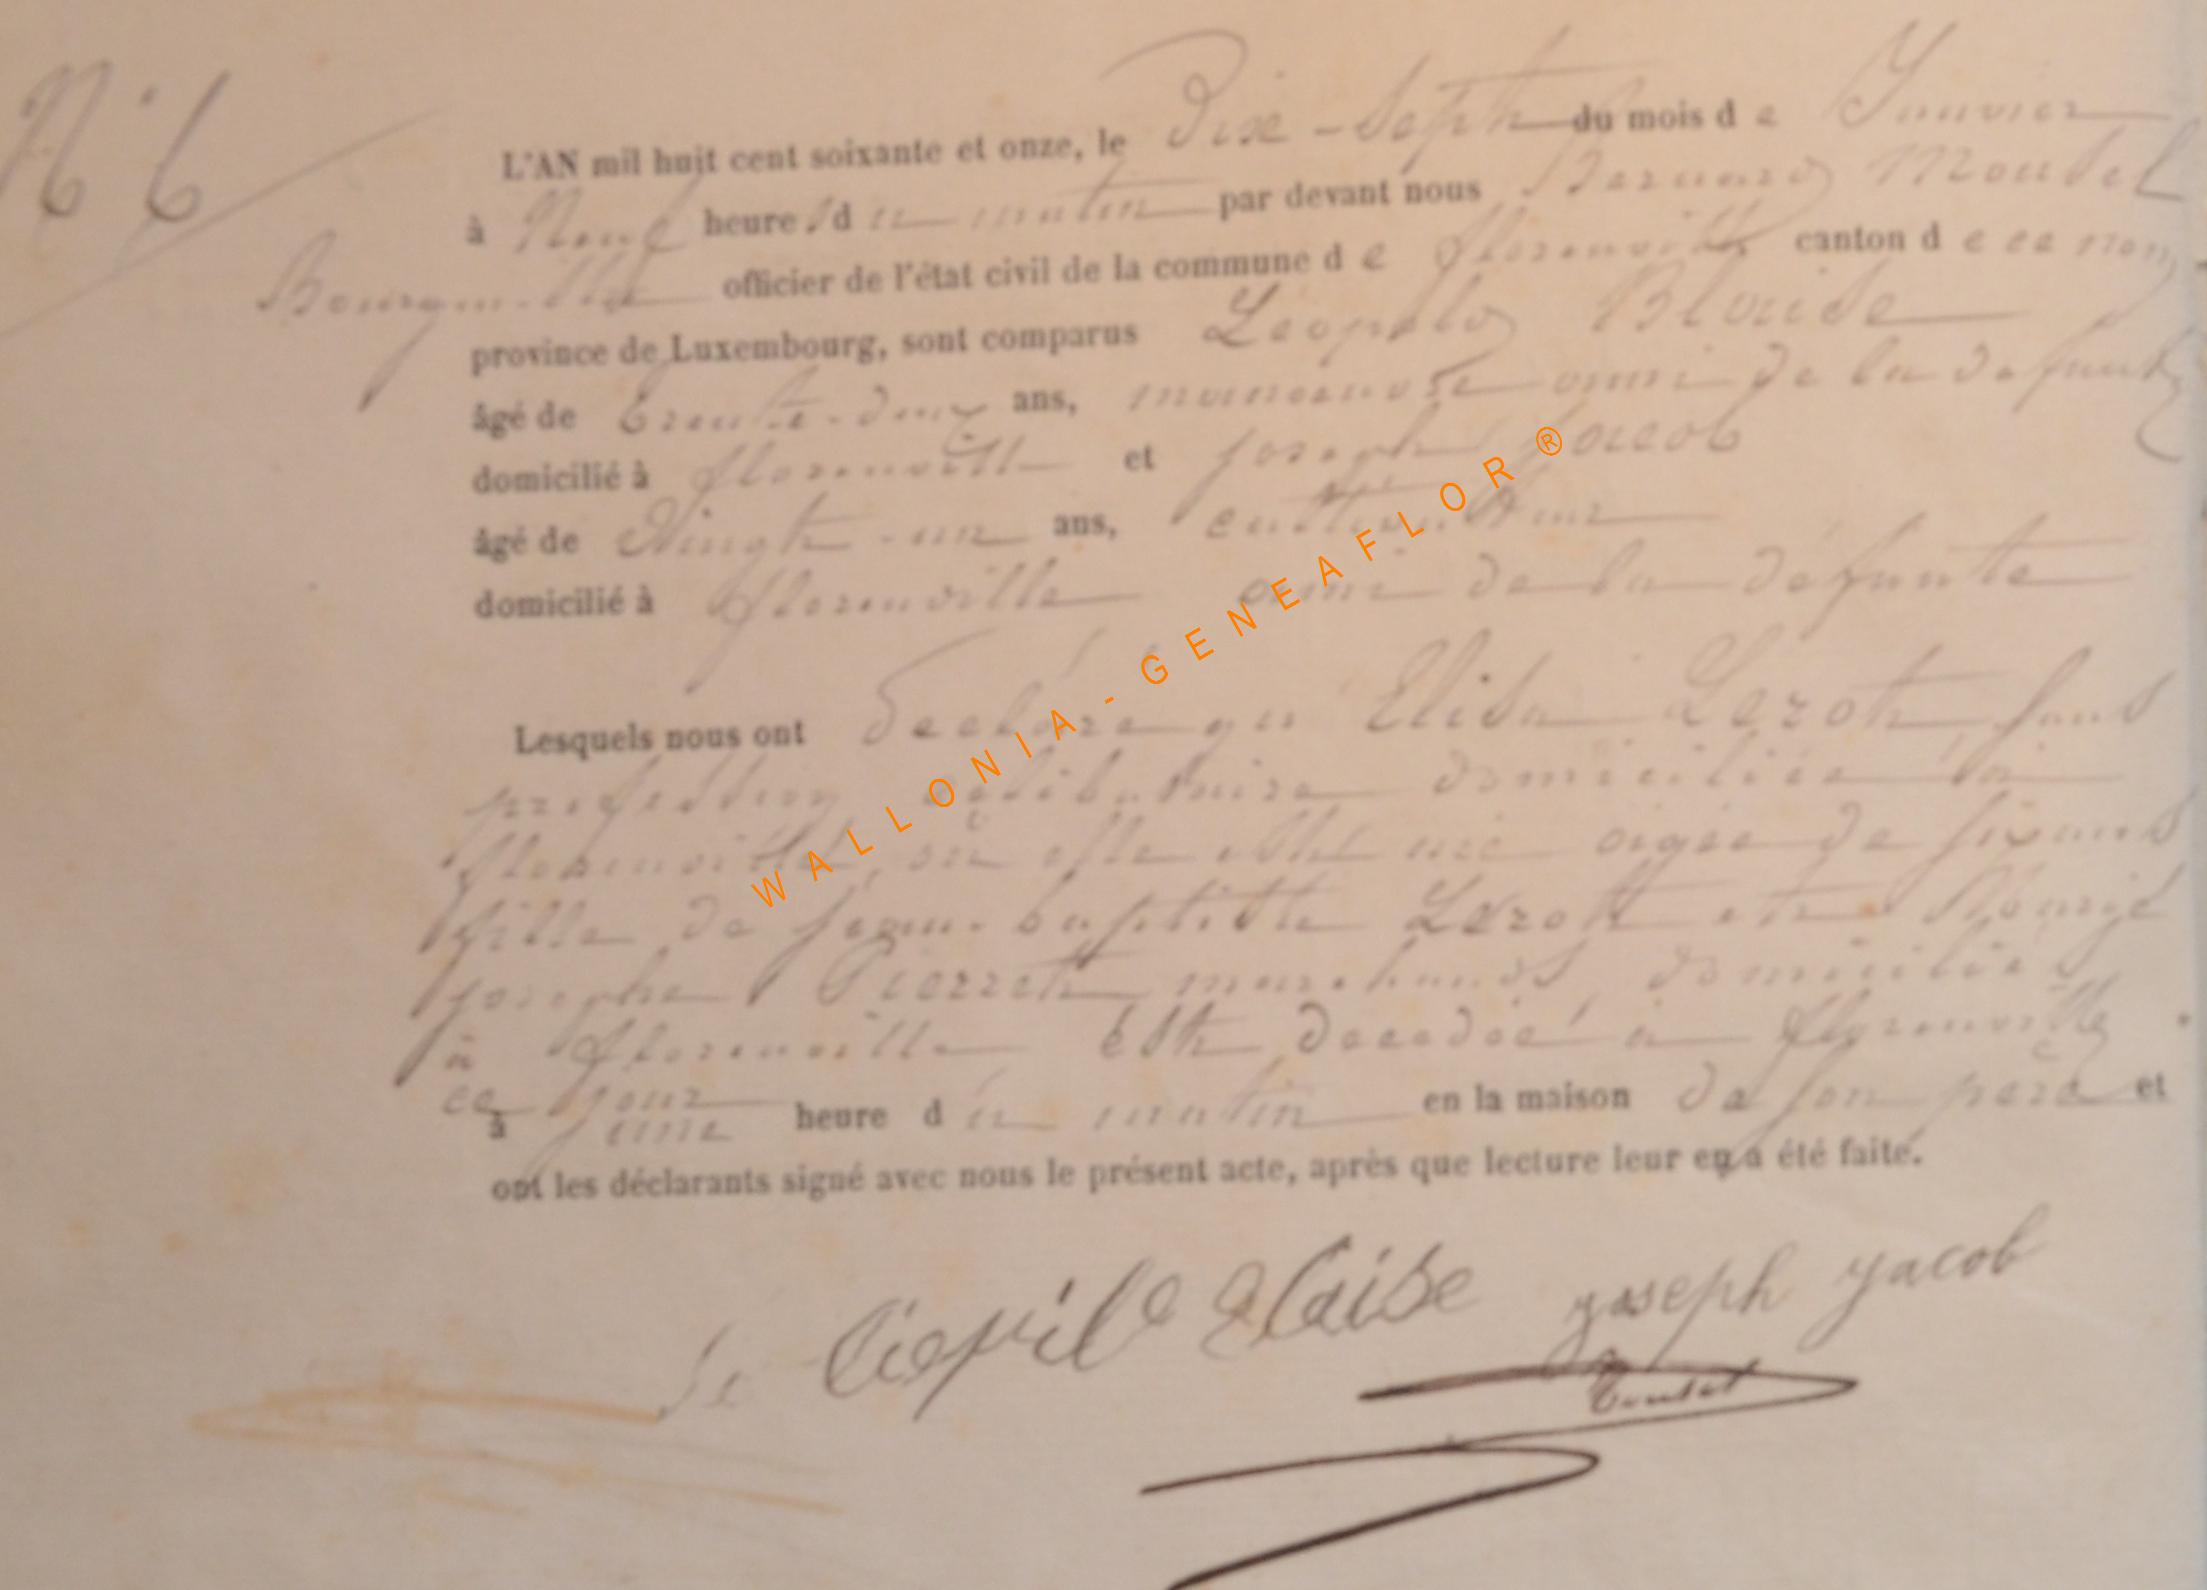 N° 6
L'AN mil huit cent soixante et onze, le Dixe-Sept du mois de Janvier
à Neuf heures du matin par devant nous Bernard
officier de l'état civil de la commune de florenville canton de ce nom
province de Luxembourg, sont comparus Léopold Blaise
âgé de trente-deux ans, manoeuvre ami de la défunte
domicilié à florenville et joseph jacob
âgé de Vingt-un ans, cultivateur
domicilié à florenville ami de la défunte
Lesquels nous ont déclaré que Elisa Lezot sans
profession célibataire domiciliée à
florenville, où elle est née agée de six ans
fille de jean-baptiste Lezot et Marie
josephe Pierret marchands domiciliés
à florenville est décédée à florenville
ce jour
à une heure du matin en la maison de son père et
ont les déclarants signé avec nous le présent acte, après que lecture leur en a été faite.
Blaise joseph jacob
WALLONIA-GENEAFLOR ®